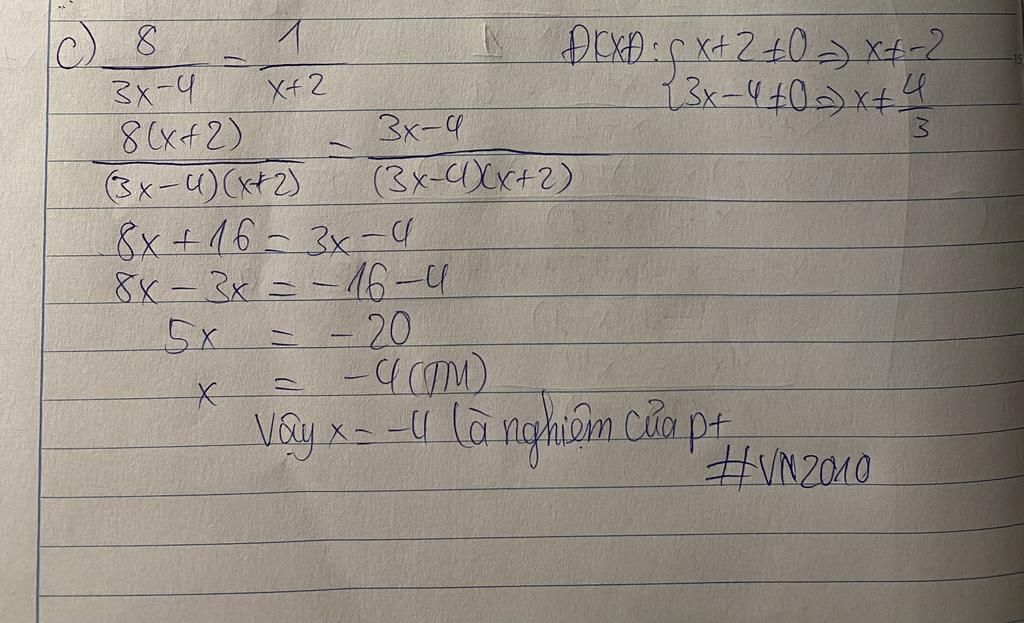 c) 8/(3x-4) = 1/(x+2) ĐKXĐ: { x+2≠0 ⇒ x≠-2
{ 3x-4≠0 ⇒ x≠4/3
8(x+2)/((3x-4)(x+2)) = (3x-4)/((3x-4)(x+2))
8x+16 = 3x-4
8x-3x = -16-4
5x = -20
x = -4 (TM)
Vậy x=-4 là nghiệm của pt
#VN2010